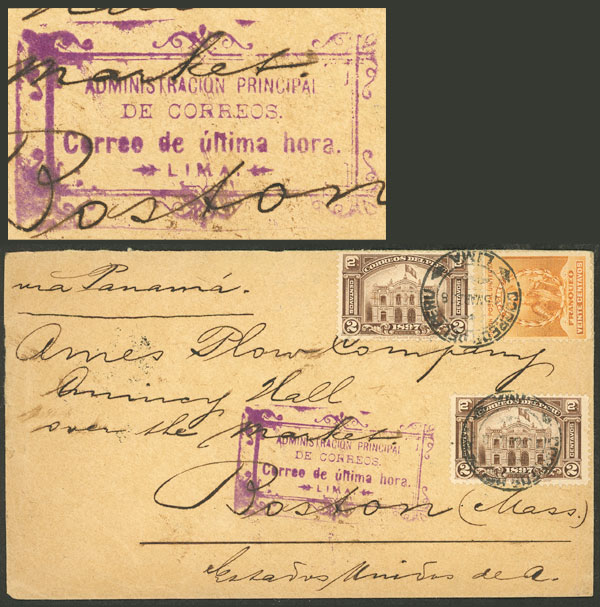 market.
ADMINISTRACION PRINCIPAL
DE CORREOS.
Correo de última hora.
LIMA
Boston
via Panamá.
2 CORREOS DEL PERU 2
2 CENTAVOS
1897
LIMA
CORREOS DEL PERU
FRANQUEO
VEINTE CENTAVOS
Ames Plow Company
Quincy Hall
over the market.
ADMINISTRACION PRINCIPAL
DE CORREOS.
Correo de última hora.
LIMA
2 CORREOS DEL PERU 2
CENTAVOS
2 1897 2
Boston (Mass.)
Estados Unidos de A.